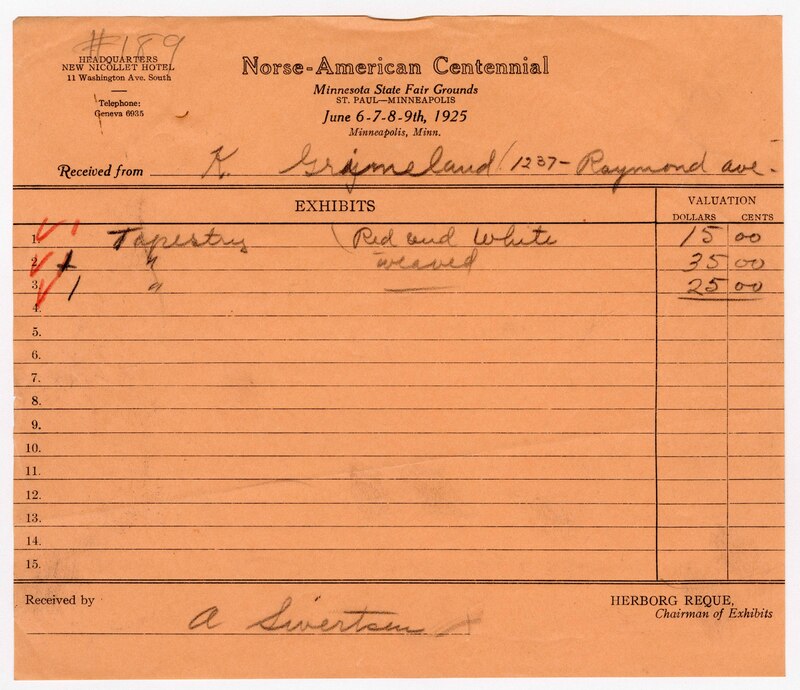 #189
HEADQUARTERS
NEW NICOLLET HOTEL
11 Washington Ave. South
Telephone:
Geneva 6935
Norse-American Centennial
Minnesota State Fair Grounds
ST. PAUL—MINNEAPOLIS
June 6-7-8-9th, 1925
Minneapolis, Minn.
Received from K. Grimeland / 1237- Raymond ave.
EXHIBITS
VALUATION
DOLLARS CENTS
1. Tapestry (Red and White 15 00
2. " weaved 35 00
3. " 25 00
4.
5.
6.
7.
8.
9.
10.
11.
12.
13.
14.
15.
Received by A Sivertsen
HERBORG REQUE,
Chairman of Exhibits